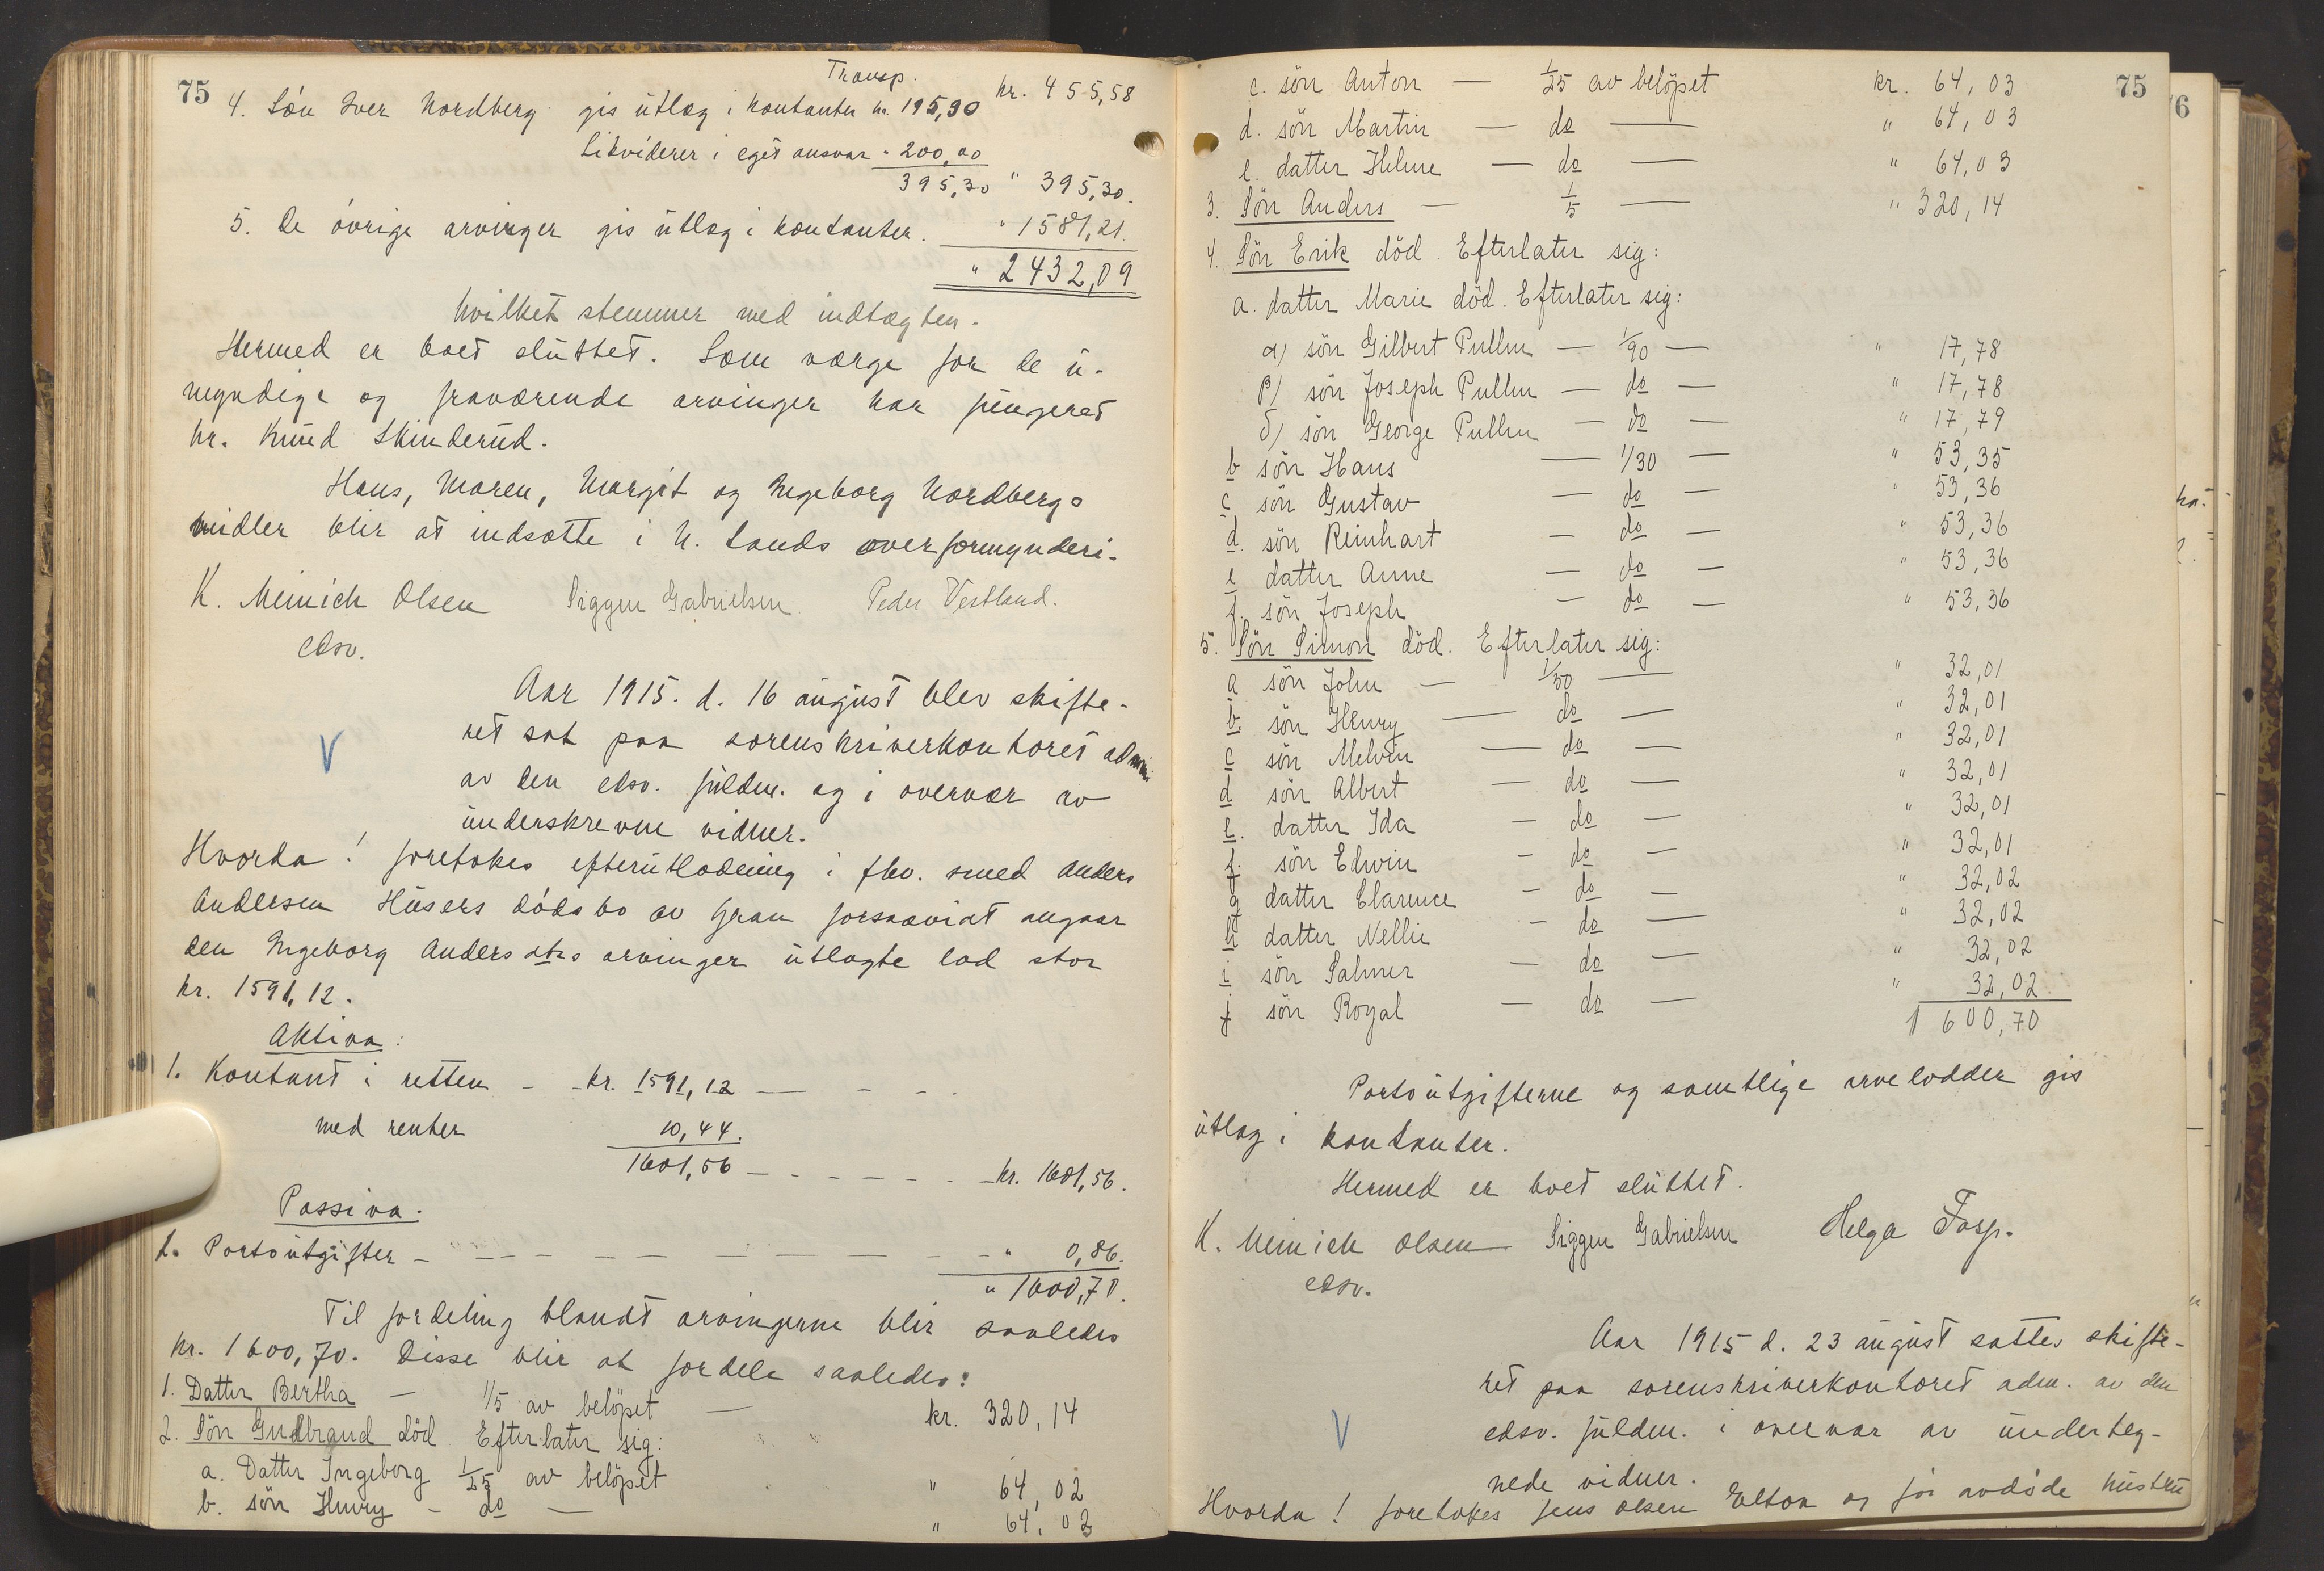 75
Transp.
kr. 455,58
4. Søn Iver Nordberg gis utlæg i kontanter kr. 195,30
Likviderer i eget ansvar " 200,00
395,30 " 395,30.
5. De øvrige arvinger gis utlæg i kontanter. " 1581,21.
" 2432,09
hvilket stemmer med indtægten.
Hermed er boet sluttet. Som værge for de u-
myndige og fraværende arvinger har fungeret
hr. Knud Skinderud.
Hans, Maren, Margit og Ingeborg Nordbergs
midler blir at indsætte i N. Lands overformynderi.
K. Meinich Olsen Siggen Gabrielsen. Peder Vestland.
edsv.
Aar 1915. d. 16 august blev skifte-
ret sat paa sorenskriverkontoret admin.
av den edsv. fuldm. og i overvær av
underskrevne vidner.
V
Hvorda! foretokes efterutlodning i fhv. smed Anders
Andersen Husers dødsbo av Gran forsaavidt angaar
den Ingeborg Andersdtrs arvinger utlagte lod stor
kr. 1591,12.
Aktiva:
1. Kontant i retten - kr. 1591,12 — - -
med renter 10,44.
1601,56 - - - - - kr. 1601,56.
Passiva.
1. Portoutgifter - - - - - - " 0,86.
" 1600,70.
Til fordeling blandt arvingerne blir saaledes
kr. 1600,70. Disse blir at fordele saaledes:
1. Datter Bertha — 1/5 av belöpet — kr. 320,14
2. Sön Gudbrand död Efterlater sig:
a. Datter Ingeborg 1/25 av belöpet " 64,02
b. sön Henry - do — " 64,02
75
76
c. sön Anton — 1/25 av belöpet kr. 64,03
d. sön Martin — do — " 64,03
e. datter Helene — do — " 64,03
3. Sön Anders — 1/5 — " 320,14
4. Sön Erik död. Efterlater sig:
a. datter Marie död. Efterlater sig:
α) sön Gilbert Pullen — 1/90 — " 17,78
β) sön Joseph Pullen — do — " 17,78
δ) sön George Pullen — do — " 17,79
b sön Hans — 1/30 — " 53,35
c sön Gustav — do — " 53,36
d. sön Reinhart — do — " 53,36
e datter Anne — do — " 53,36
f. sön Joseph — do — " 53,36
5. Sön Simon död. Efterlater sig:
a sön John — 1/50 — " 32,01
b. sön Henry — do — " 32,01
c sön Melvin — do — " 32,01
d sön Albert — do — " 32,01
e. datter Ida — do — " 32,01
f. sön Edwin - do — " 32,01
g datter Clarence - do — " 32,02
h datter Nellie - do — " 32,02
i sön Palmer — do — " 32,02
j sön Royal — do — " 32,02.
1600,70
Portoutgifterne og samtlige arvelodder gis
utlæg i kontanter.
Hermed er boet sluttet.
K. Meinich Olsen Siggen Gabrielsen Helga Fosp.
edsv.
Aar 1915 d. 23 august sattes skifte-
ret paa sorenskriverkontoret adm. av den
edsv. fuldm. i overvær av underteg-
nede vidner.
V
Hvorda! foretokes Jens Olsen Elton og før avdøde hustru